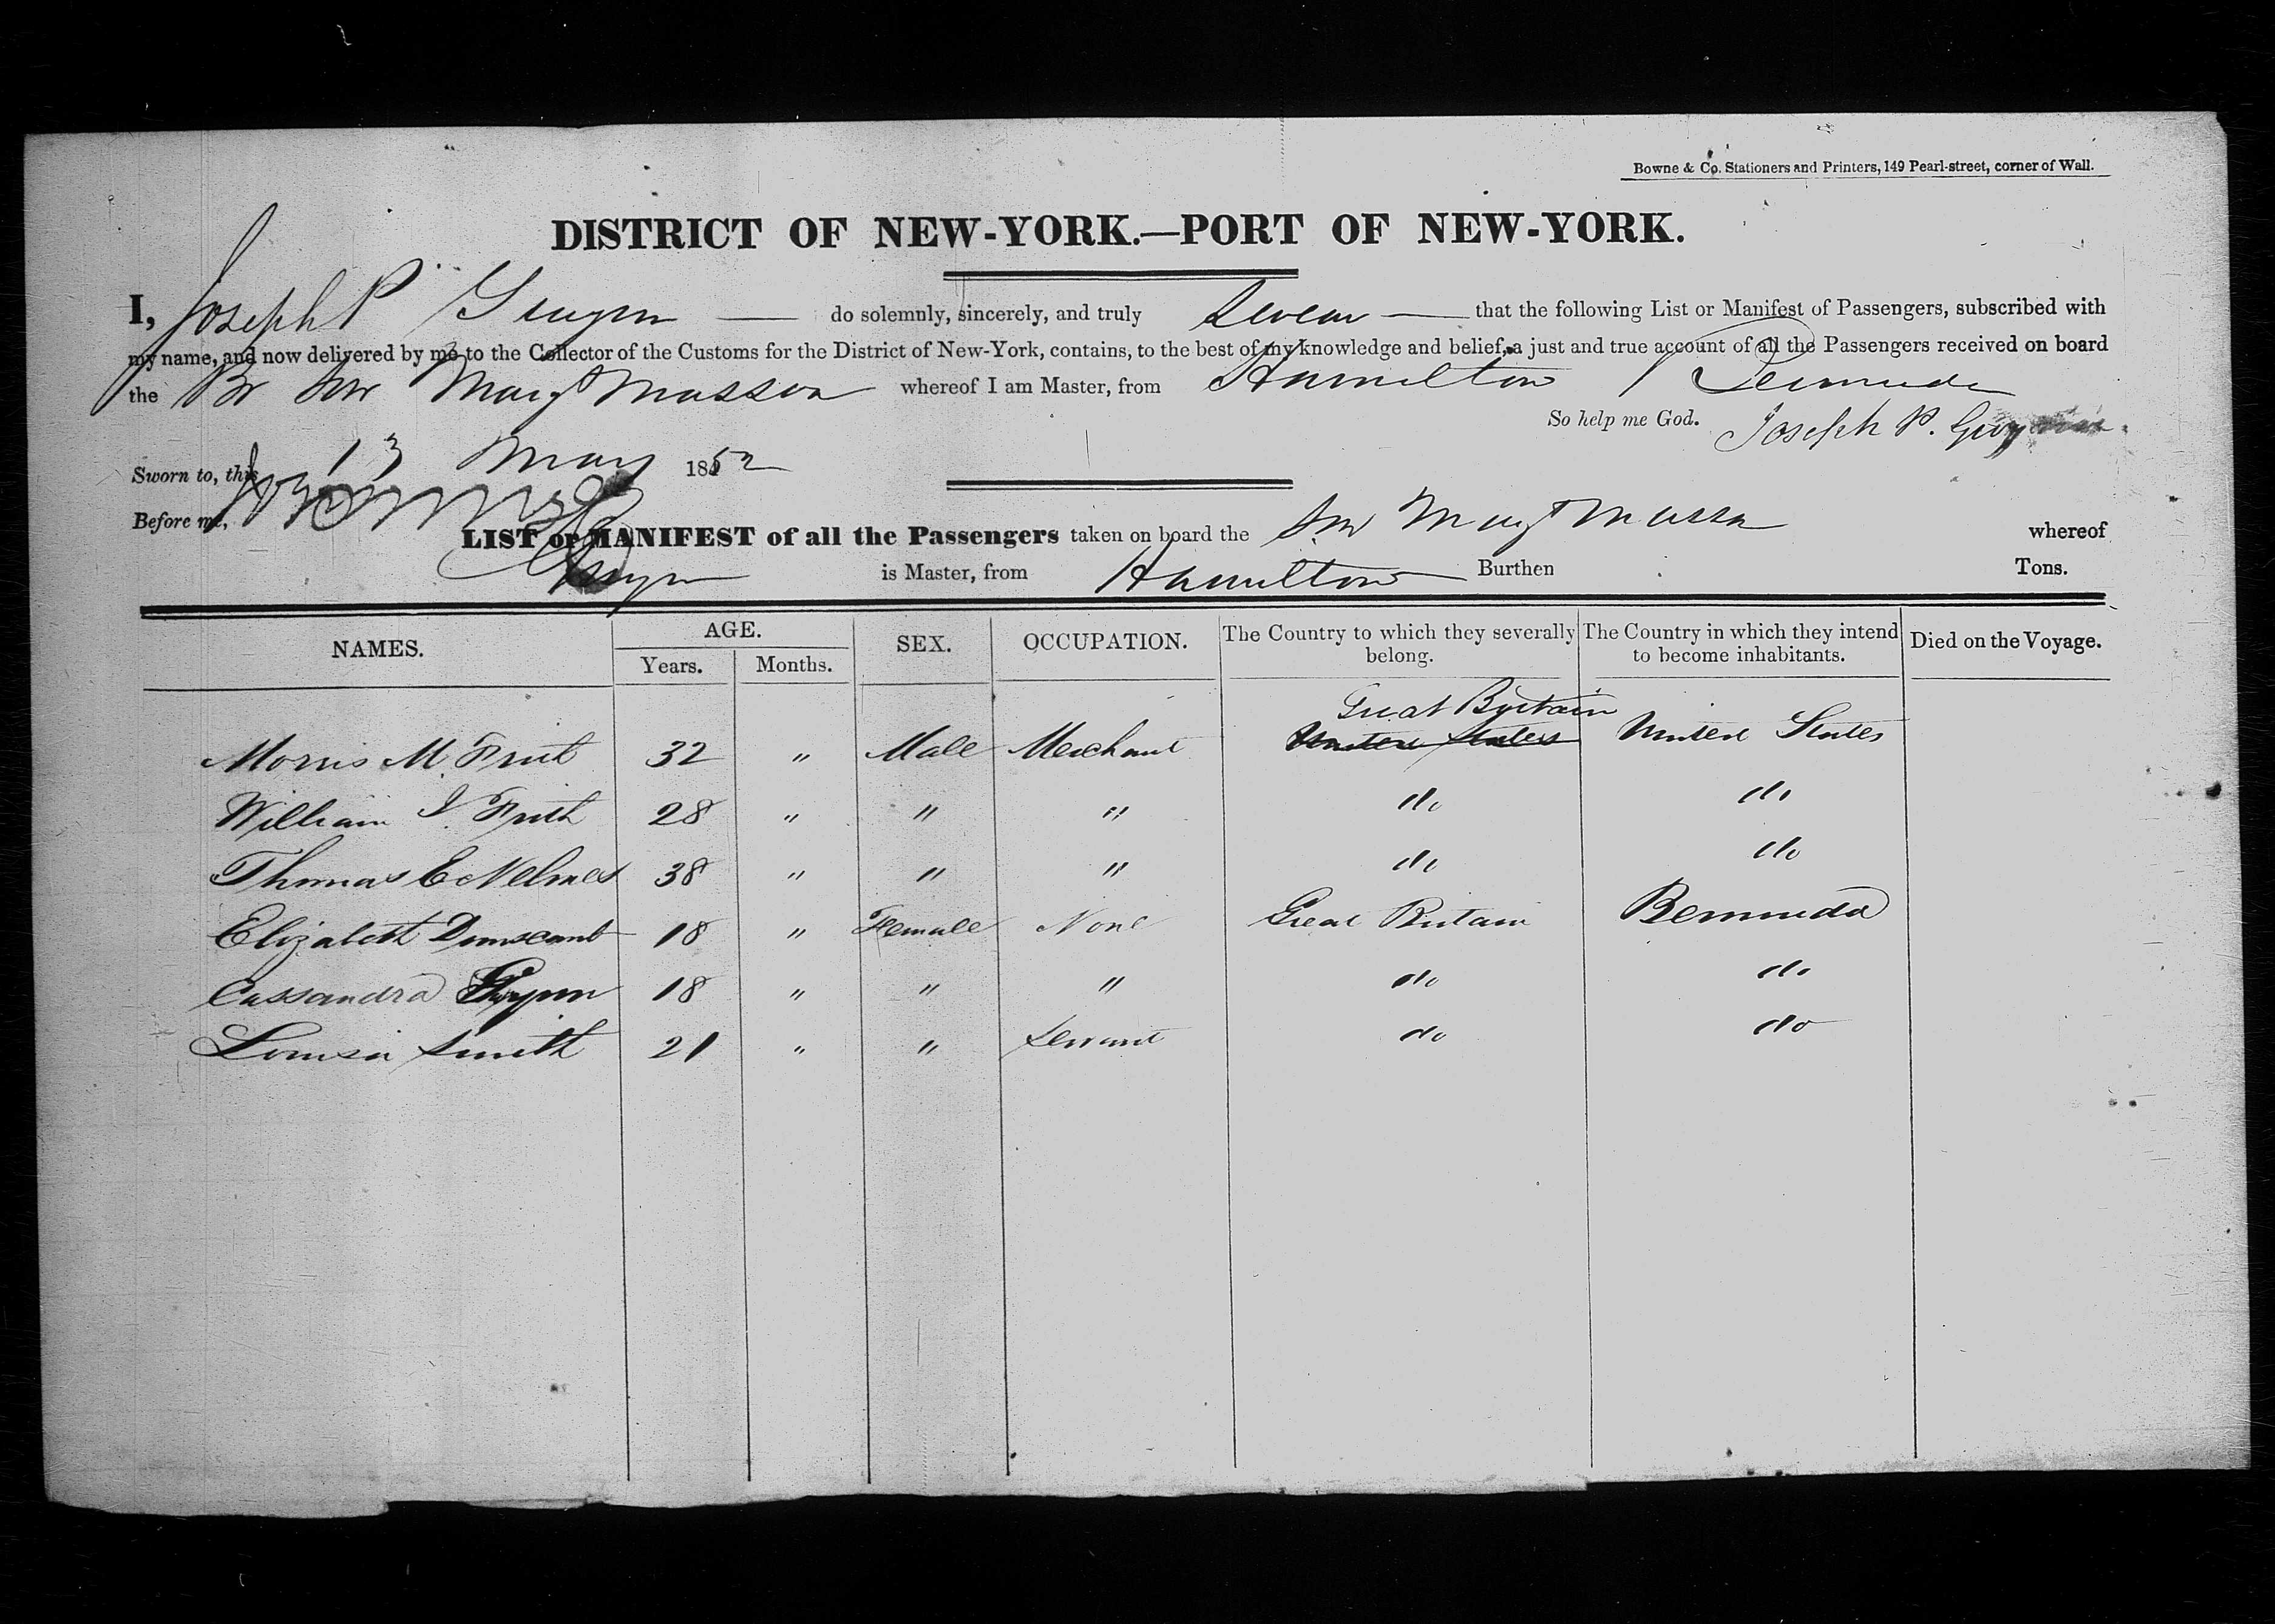 Bowne & Co. Stationers and Printers, 149 Pearl-street, corner of Wall.
DISTRICT OF NEW-YORK.—PORT OF NEW-YORK.
I, Joseph P Gwynn — do solemnly, sincerely, and truly Swear — that the following List or Manifest of Passengers, subscribed with
my name, and now delivered by me to the Collector of the Customs for the District of New-York, contains, to the best of my knowledge and belief, a just and true account of all the Passengers received on board
the Br Mary whereof I am Master, from Hamilton Bermuda
So help me God. Joseph P.
Sworn to, this 13 May 1852
Before me,
LIST or MANIFEST of all the Passengers taken on board the Mary whereof
is Master, from Hamilton Burthen Tons.
NAMES. AGE. SEX. OCCUPATION. The Country to which they severally belong. The Country in which they intend to become inhabitants. Died on the Voyage.
Years. Months.
Great Britain
Morris M. Frith 32 " Male Merchant United States United States
William Frith 28 " " " do do
Thomas E Nelmes 38 " " " do do
Elizabeth 18 " Female None Great Britain Bermuda
Cassandra Gwynn 18 " " " do do
Louisa Smith 21 " " Servant do do